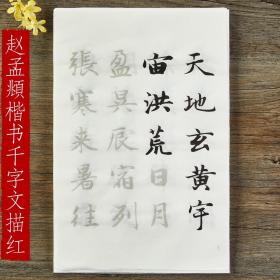 赵孟頫楷书千字文描红
天地玄黄宇
宙洪荒日月
盈昃辰宿列
張寒来暑往